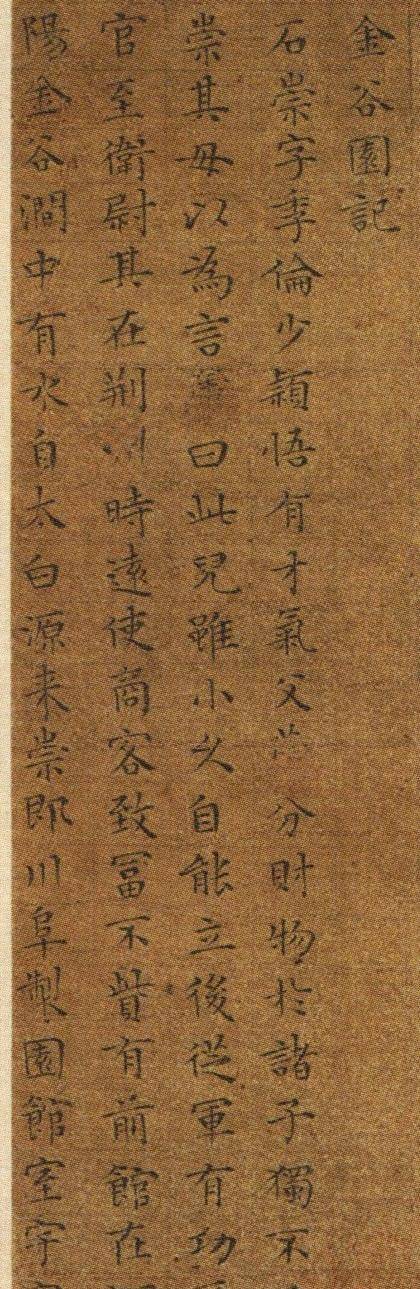 金谷園記
石崇字季倫少穎悟有才氣父分財物於諸子獨不
崇其母以為言曰此兒雖小久自能立後從軍有功
官至衛尉其在荆州時遠使商客致冨不貲有前館在
陽金谷澗中有水自太白源来崇即川阜製園館室宇